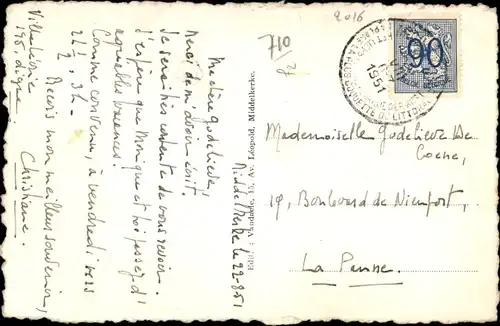 2016
710
90
1951
Mademoiselle Godelieve De
Coene,
19, Boulevard de Nieuport,
La Panne.
Edit. : Vandaele, 15, Av. Léopold, Middelkerke.
le 22-8-51
Ma chère Godelieve,
Merci de m'avoir écrit.
Je serai très contente de vous revoir.
J'espère que Monique et toi passez d'
agréables vacances!
Comme convenu, à vendredi vers
2h½, 3h-
Reçois mon meilleur souvenir,
Christiane.
Villa
195, digue.